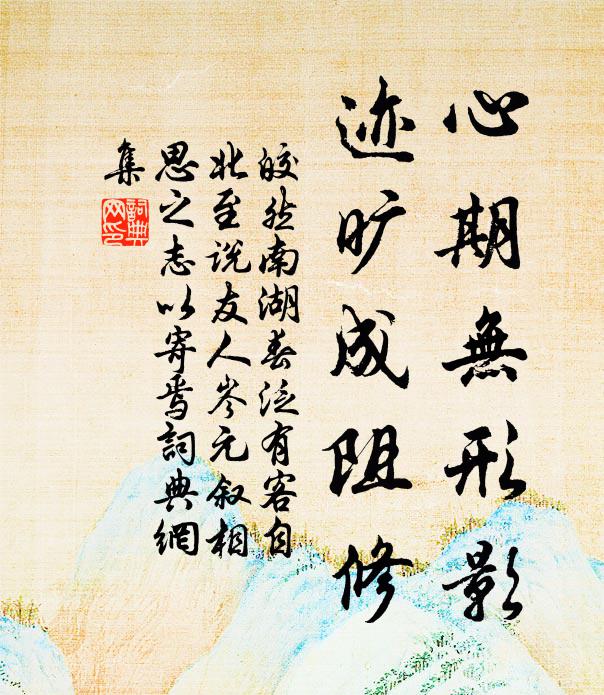 心期無形影
迹旷成阻修
皎然南湖春泛有客自
北至说友人岑元叙相
思之志以寄焉詞典網
集
詞典
网印